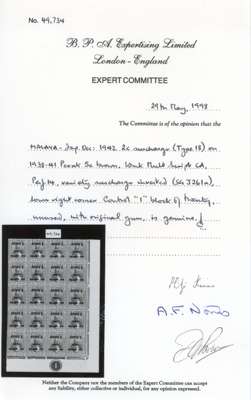 No. 49,734
B. P. A. Expertising Limited
London - England
EXPERT COMMITTEE
29th May, 1998
The Committee is of the opinion that the
MALAYA - Jap. Occ: 1942 2c surcharge (Type 18) on
1938-41 Perak 5c brown, Wmk Mult Script CA,
Perf 14, variety surcharge inverted (SG J261a),
lower right corner Control "1" block of twenty,
unused, with original gum, is genuine.
A.F. Norris
Neither the Company nor the members of the Expert Committee can accept
any liability, either collective or individual, for any opinion expressed.